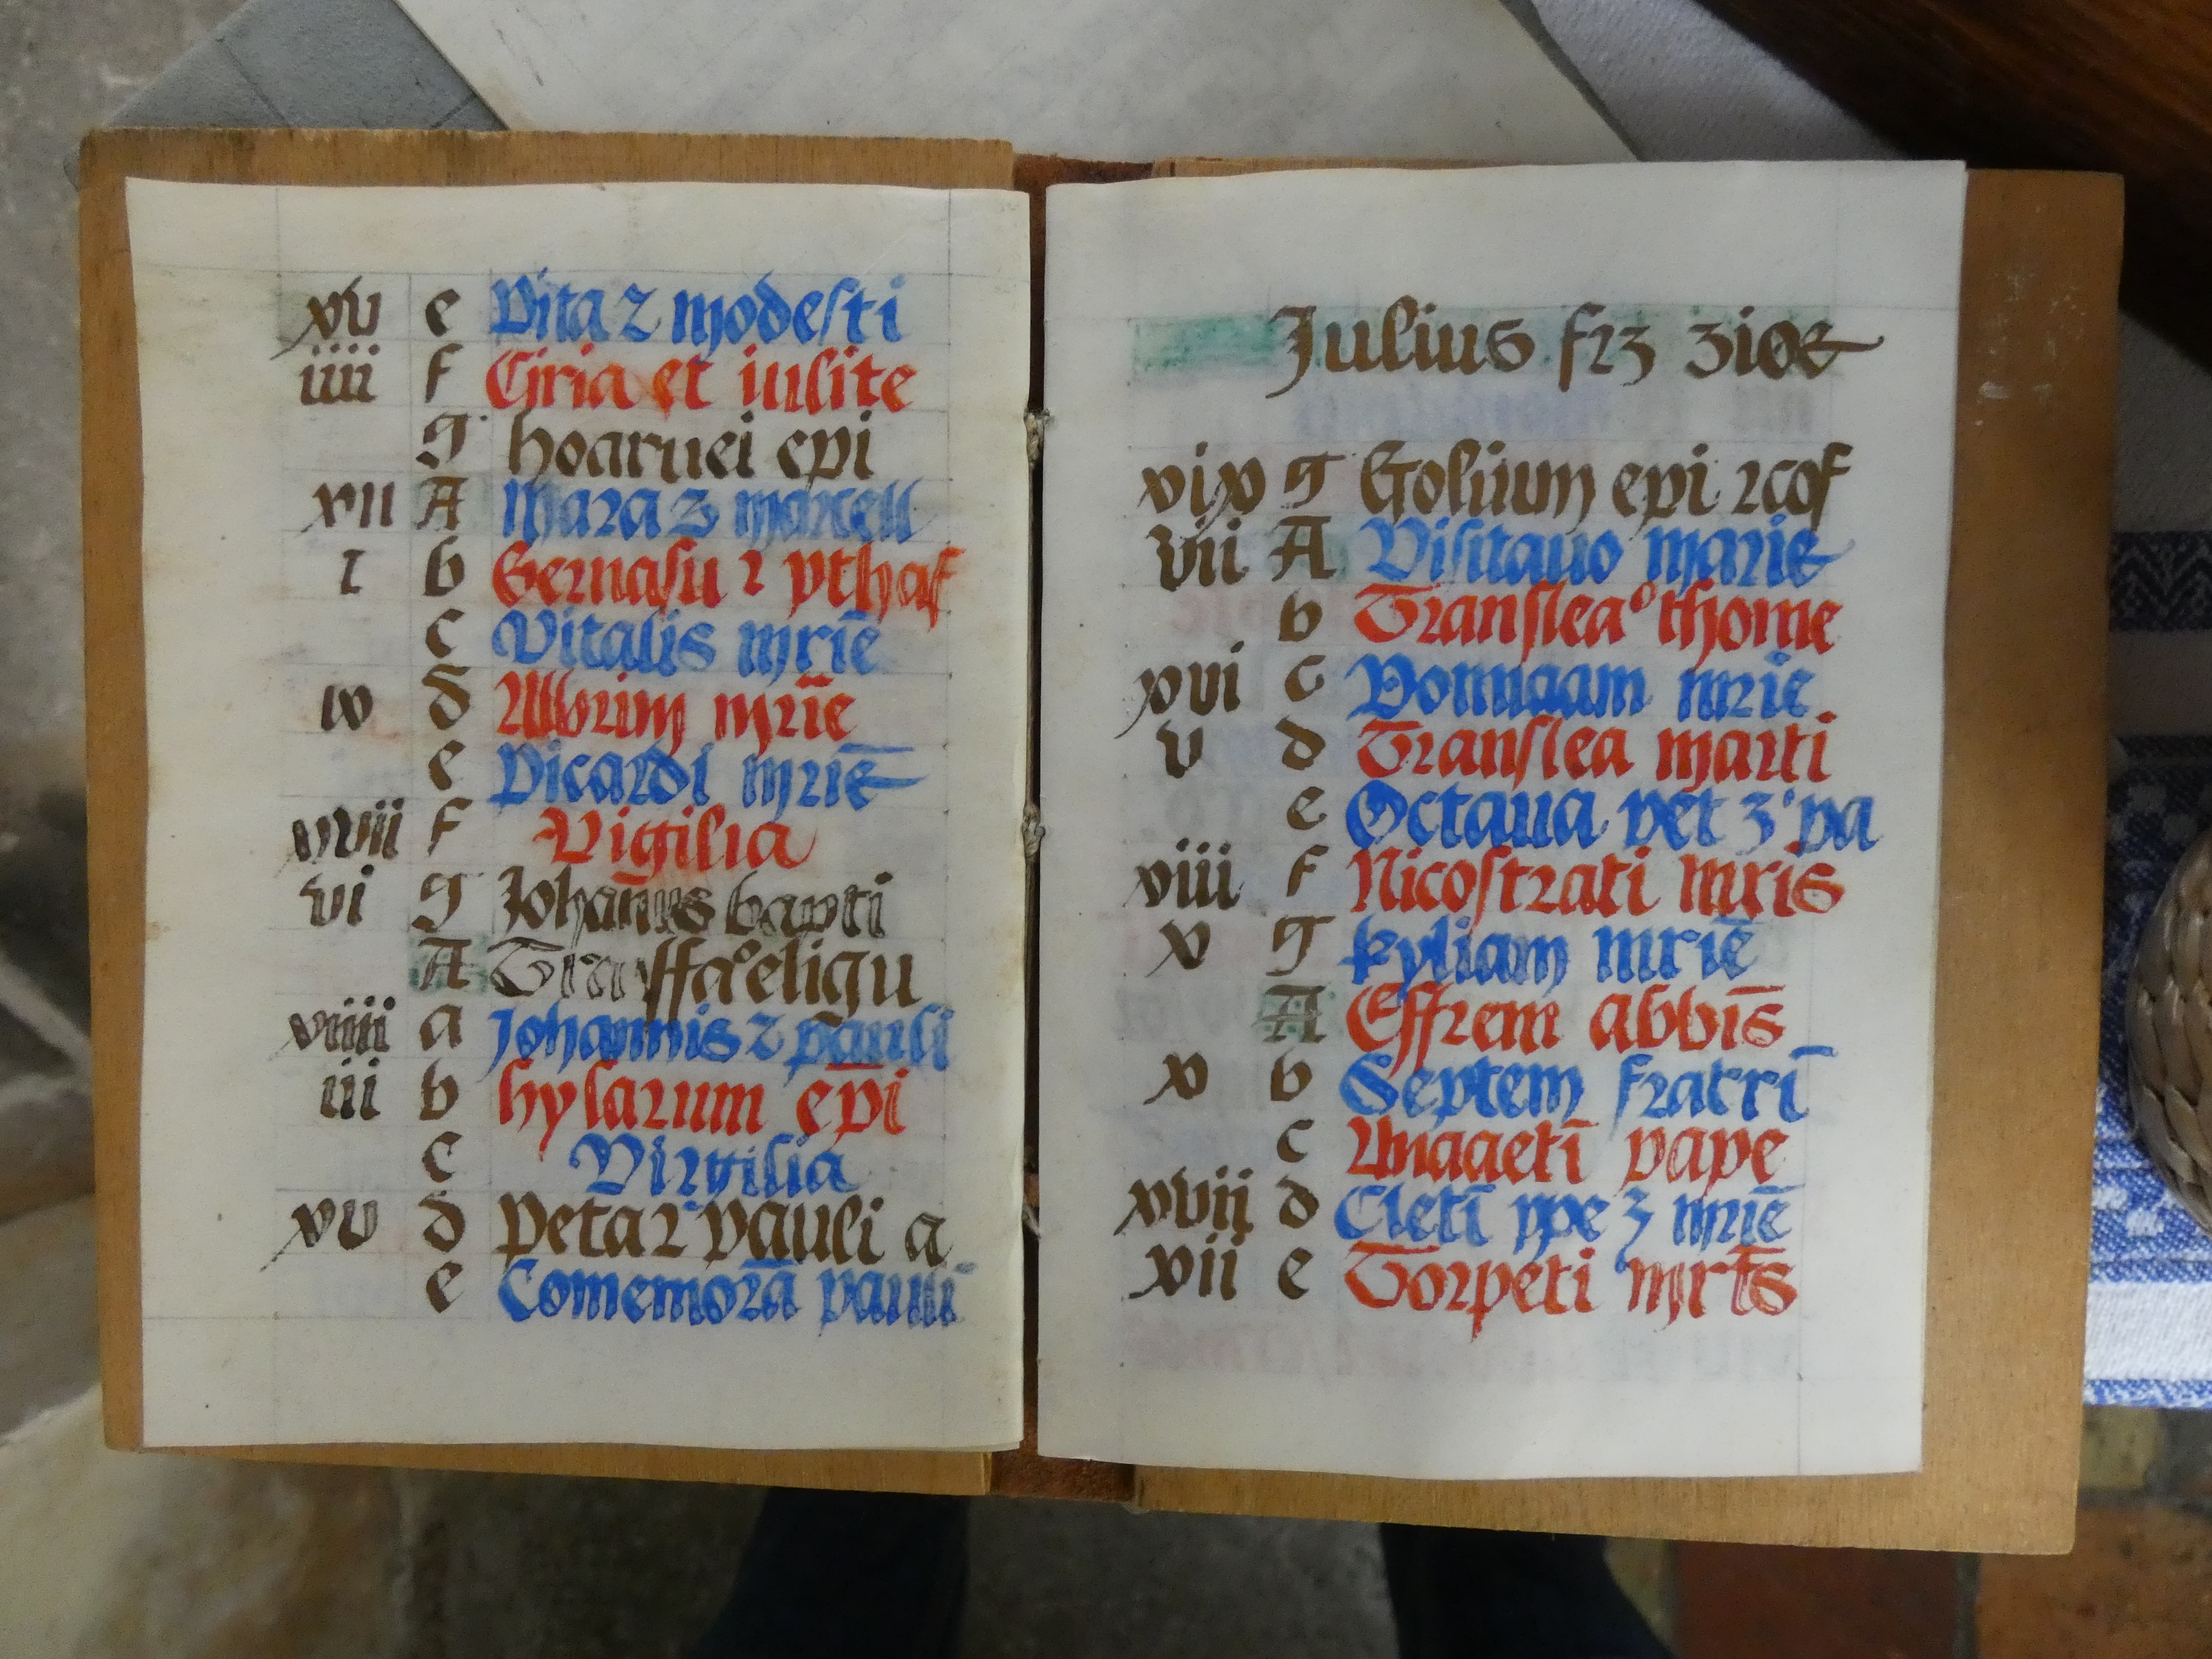 xv e Vita ⁊ modesti
iiii f Ciria et iulite
g hoaruei epi
xii A Mara ⁊ marcell
i b Geruasii ⁊ pthas
c Vitalis mrīe
ix d Albrim mrīe
e Vicardi mrīe
xvii f Vigilia
vi g Johanis bapti
A eligu
xiiii a Johannis ⁊ pauli
iii b hylarum ep̄i
c Virgilia
xv d Peta ⁊ pauli a
e Comemorā pauli
Julius
xix g Golium epi ⁊cof
viii A Visitauo marie
b Translea° thome
xvi c mrie
v d Translea marti
e Octaua pet ⁊ pa
xiii f Nicostrati mris
x g kyliam mriē
A Effrem abbīs
x b Septem fratrī
c Anacletī pape
xvii d Cletī ppe ⁊ mriē
xii e Torpeti mrt̄s